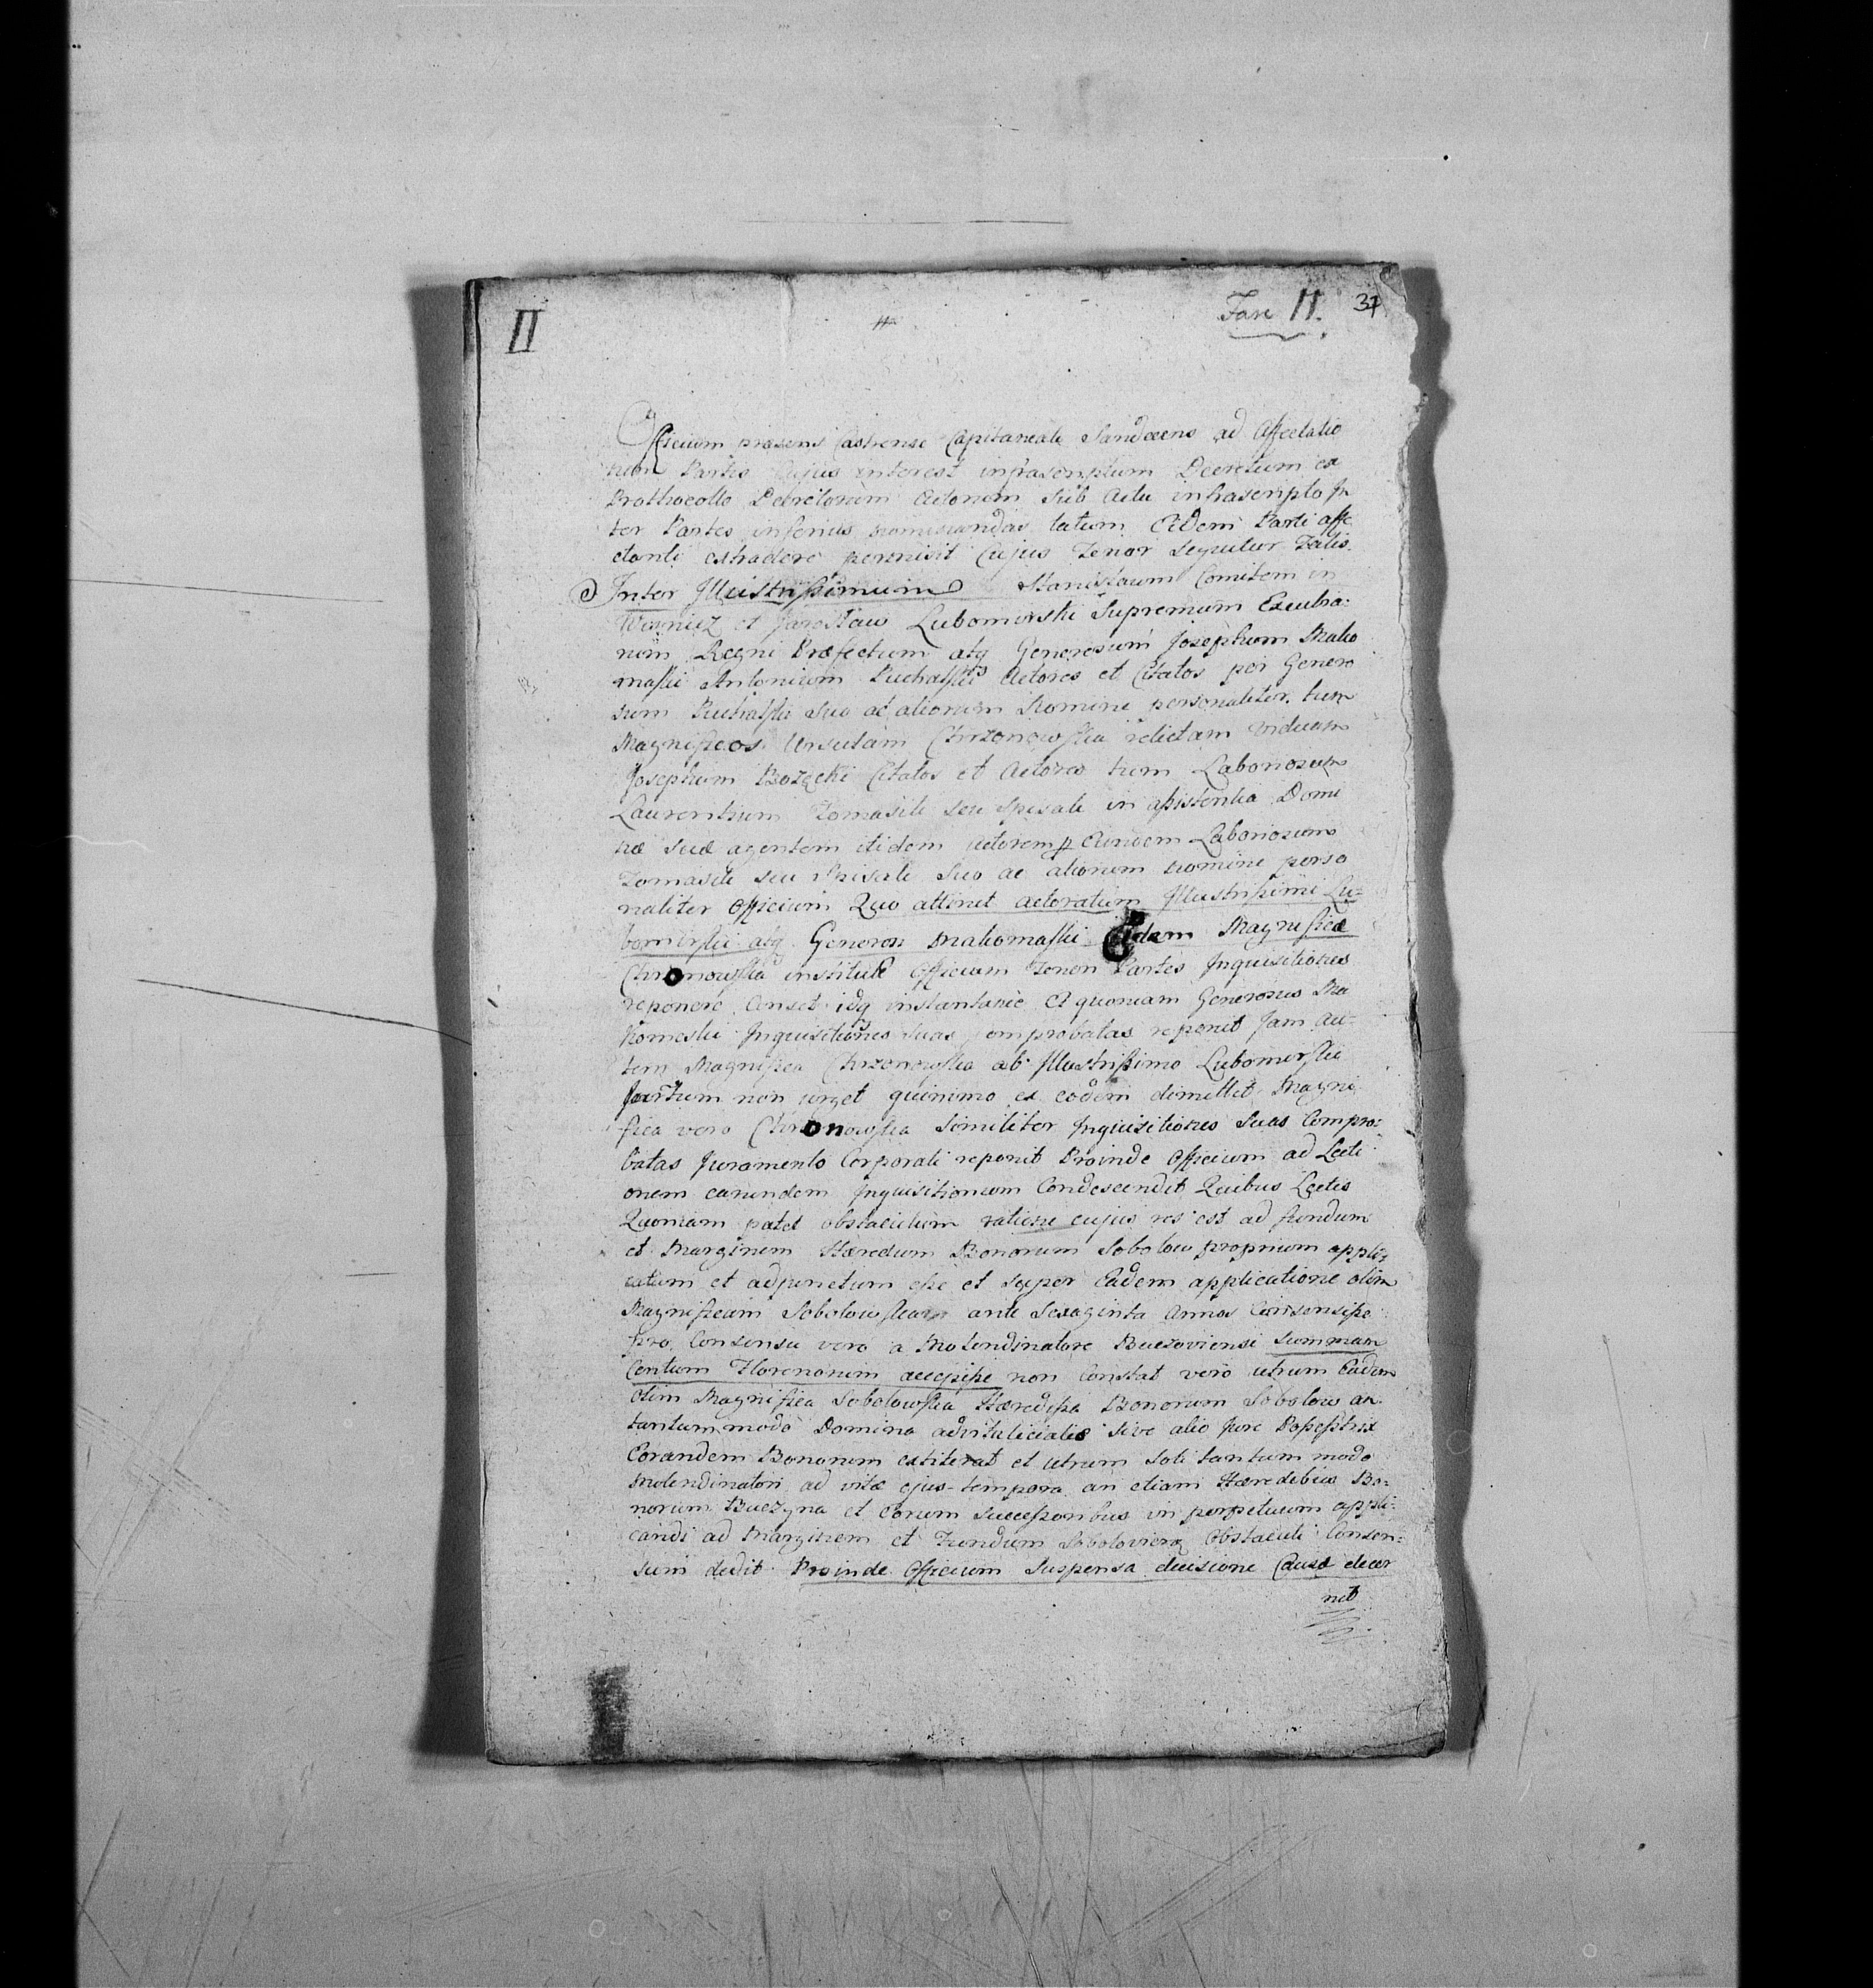 II
Fasc II. 37
Officium præsens Castrense Capitaneale Sandecens ad Affectatio
nem Partis Cujus interest infrascriptum Decretum ex
Prothocollo Decretorum Actorum sub Actu infrascripto In
ter Partes inferius nominandas latum Eidem Parti affe
ctanti extradere permisit Cujus Tenor sequitur Talis.
Inter Illustrissimum Stanislaum Comitem in
Wisnicz et Jaroslaw Lubomirski Supremum Excubia:
rum Regni Præfectum atq Generosum Josephum Maho
maski Antonium Puchalski Actores et Citatos per Genero
sum Puchalski suo ac aliorum Nomine personaliter, tum
Magnificos Ursulam Chrzonowska relictam viduam
Josephum Bozęcki Citatos et Actores tum Laboriosum
Laurentium Tomasik seu Spisak in assistentia Domi
næ suæ agentem itidem actorem p eundem Laboriosum
Tomasik seu Spisak suo ac aliorum nomine perso
naliter Officium Quo attinet actoratum Illustrissimi Lu=
bomirski atq Generosi Mahomaski Eidem Magnificæ
Chronowska institut Officium Tenen Partes Inquisitiones
reponere Censet idq instantanie Et quoniam Generosus Ma
homaski Inquisitiones suas comprobatas reponit Jam au=
tem Magnifica Chrzonowska ab Illustrissimo Lubomirski
non urget quinimo ex eodem dimittit Magni
fica vero Chronowska Similiter Inquisitiones Suas Compro:
batas Juramento Corporali reponit Proinde Officium ad Lecti
onem earundem Inquisitionum Condescendit Quibus Lectis
Quoniam patet obstaculum ratione cujus res est ad fundum
et Marginem Hæredum Bonorum Sobolow proprium appli=
catum et adjunctum esse et super Eadem applicatione olim
Magnificam Sobolowskam ante Sexaginta Annos Consensisse
pro Consensu vero a Molendinatore Buczoviensi summam
Centum Florenorum accepisse non Constat vero utrum Eadem
olim Magnifica Sobolowska Hæredissa Bonorum Sobolow an
tantummodo Domina advitalicialis sive alio Jure Possestrix
Eorundem Bonorum extiterat et utrum soli tantum modo
Molendinatori ad vitæ ejus tempora an etiam Hæredibus Bo=
norum Buczyna et Eorum Successoribus in perpetuum appli=
candi ad Marginem et Fundum Obstaculi Consen=
sum dedit Proinde Officium Suspensa decisione Causæ decer
net